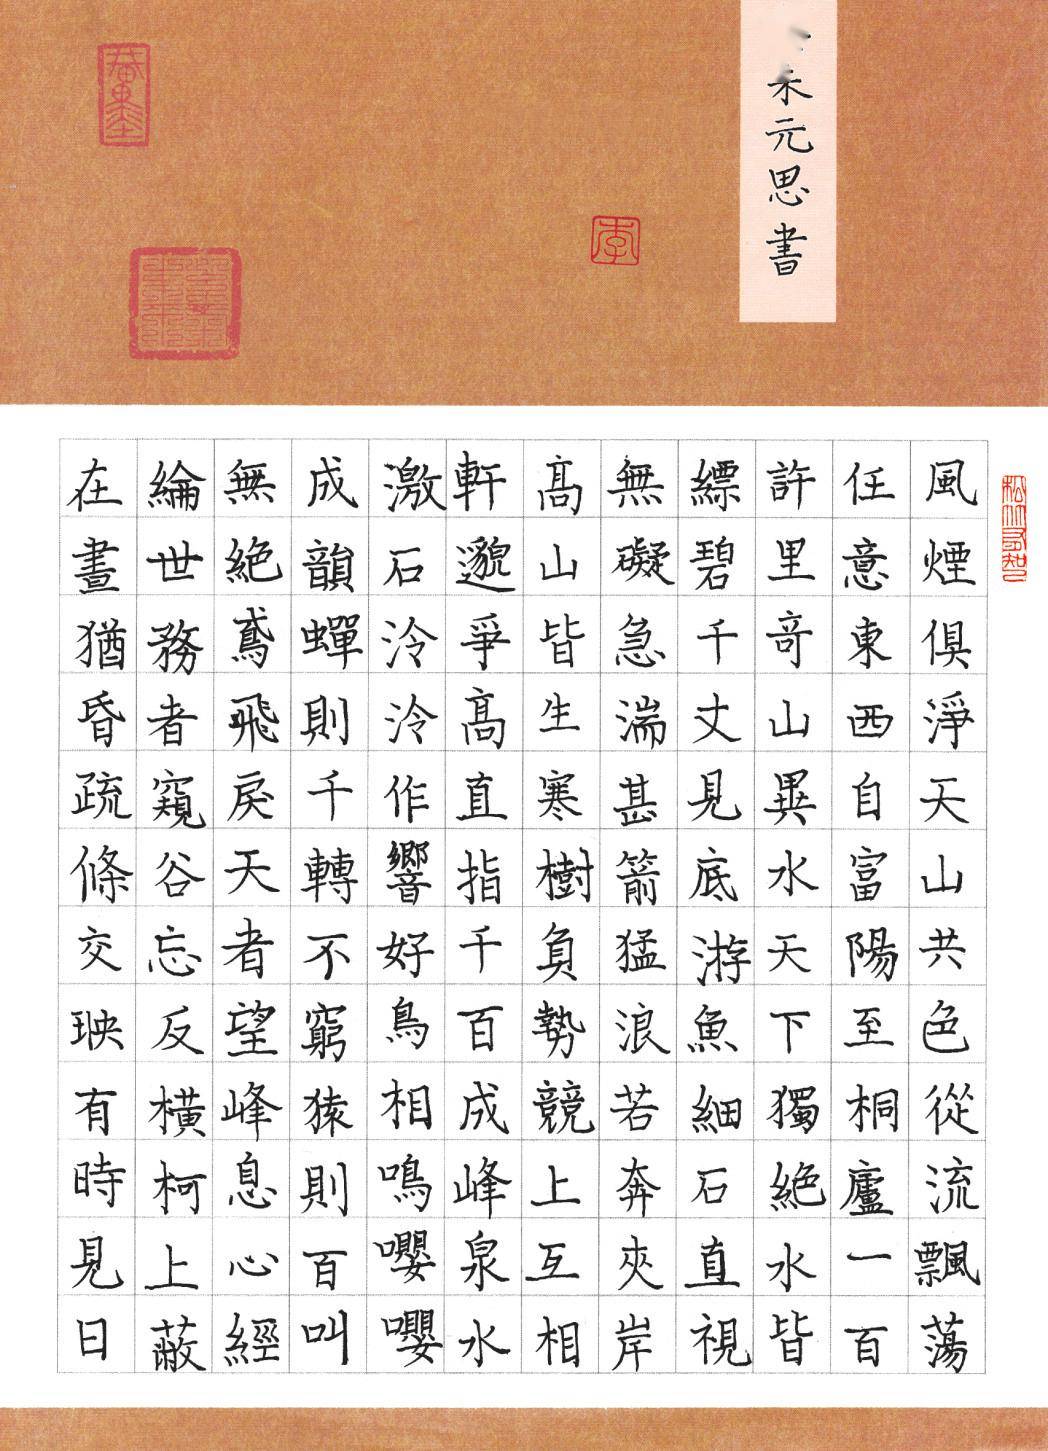 朱元思書
風煙俱淨天山共色從流飄蕩
任意東西自富陽至桐廬一百
許里竒山異水天下獨絕水皆
縹碧千丈見底游魚細石直視
無礙急湍甚箭猛浪若奔夾岸
髙山皆生寒樹負勢競上互相
軒邈爭髙直指千百成峰泉水
激石泠泠作響好鳥相鳴嚶嚶
成韻蟬則千轉不窮猿則百叫
無絕鳶飛戾天者望峰息心經
綸世務者窺谷忘反橫柯上蔽
在晝猶昏疏條交映有時見日
李